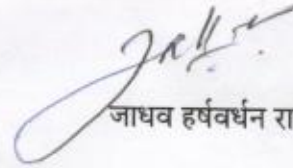 जाधव हर्षवर्धन रा